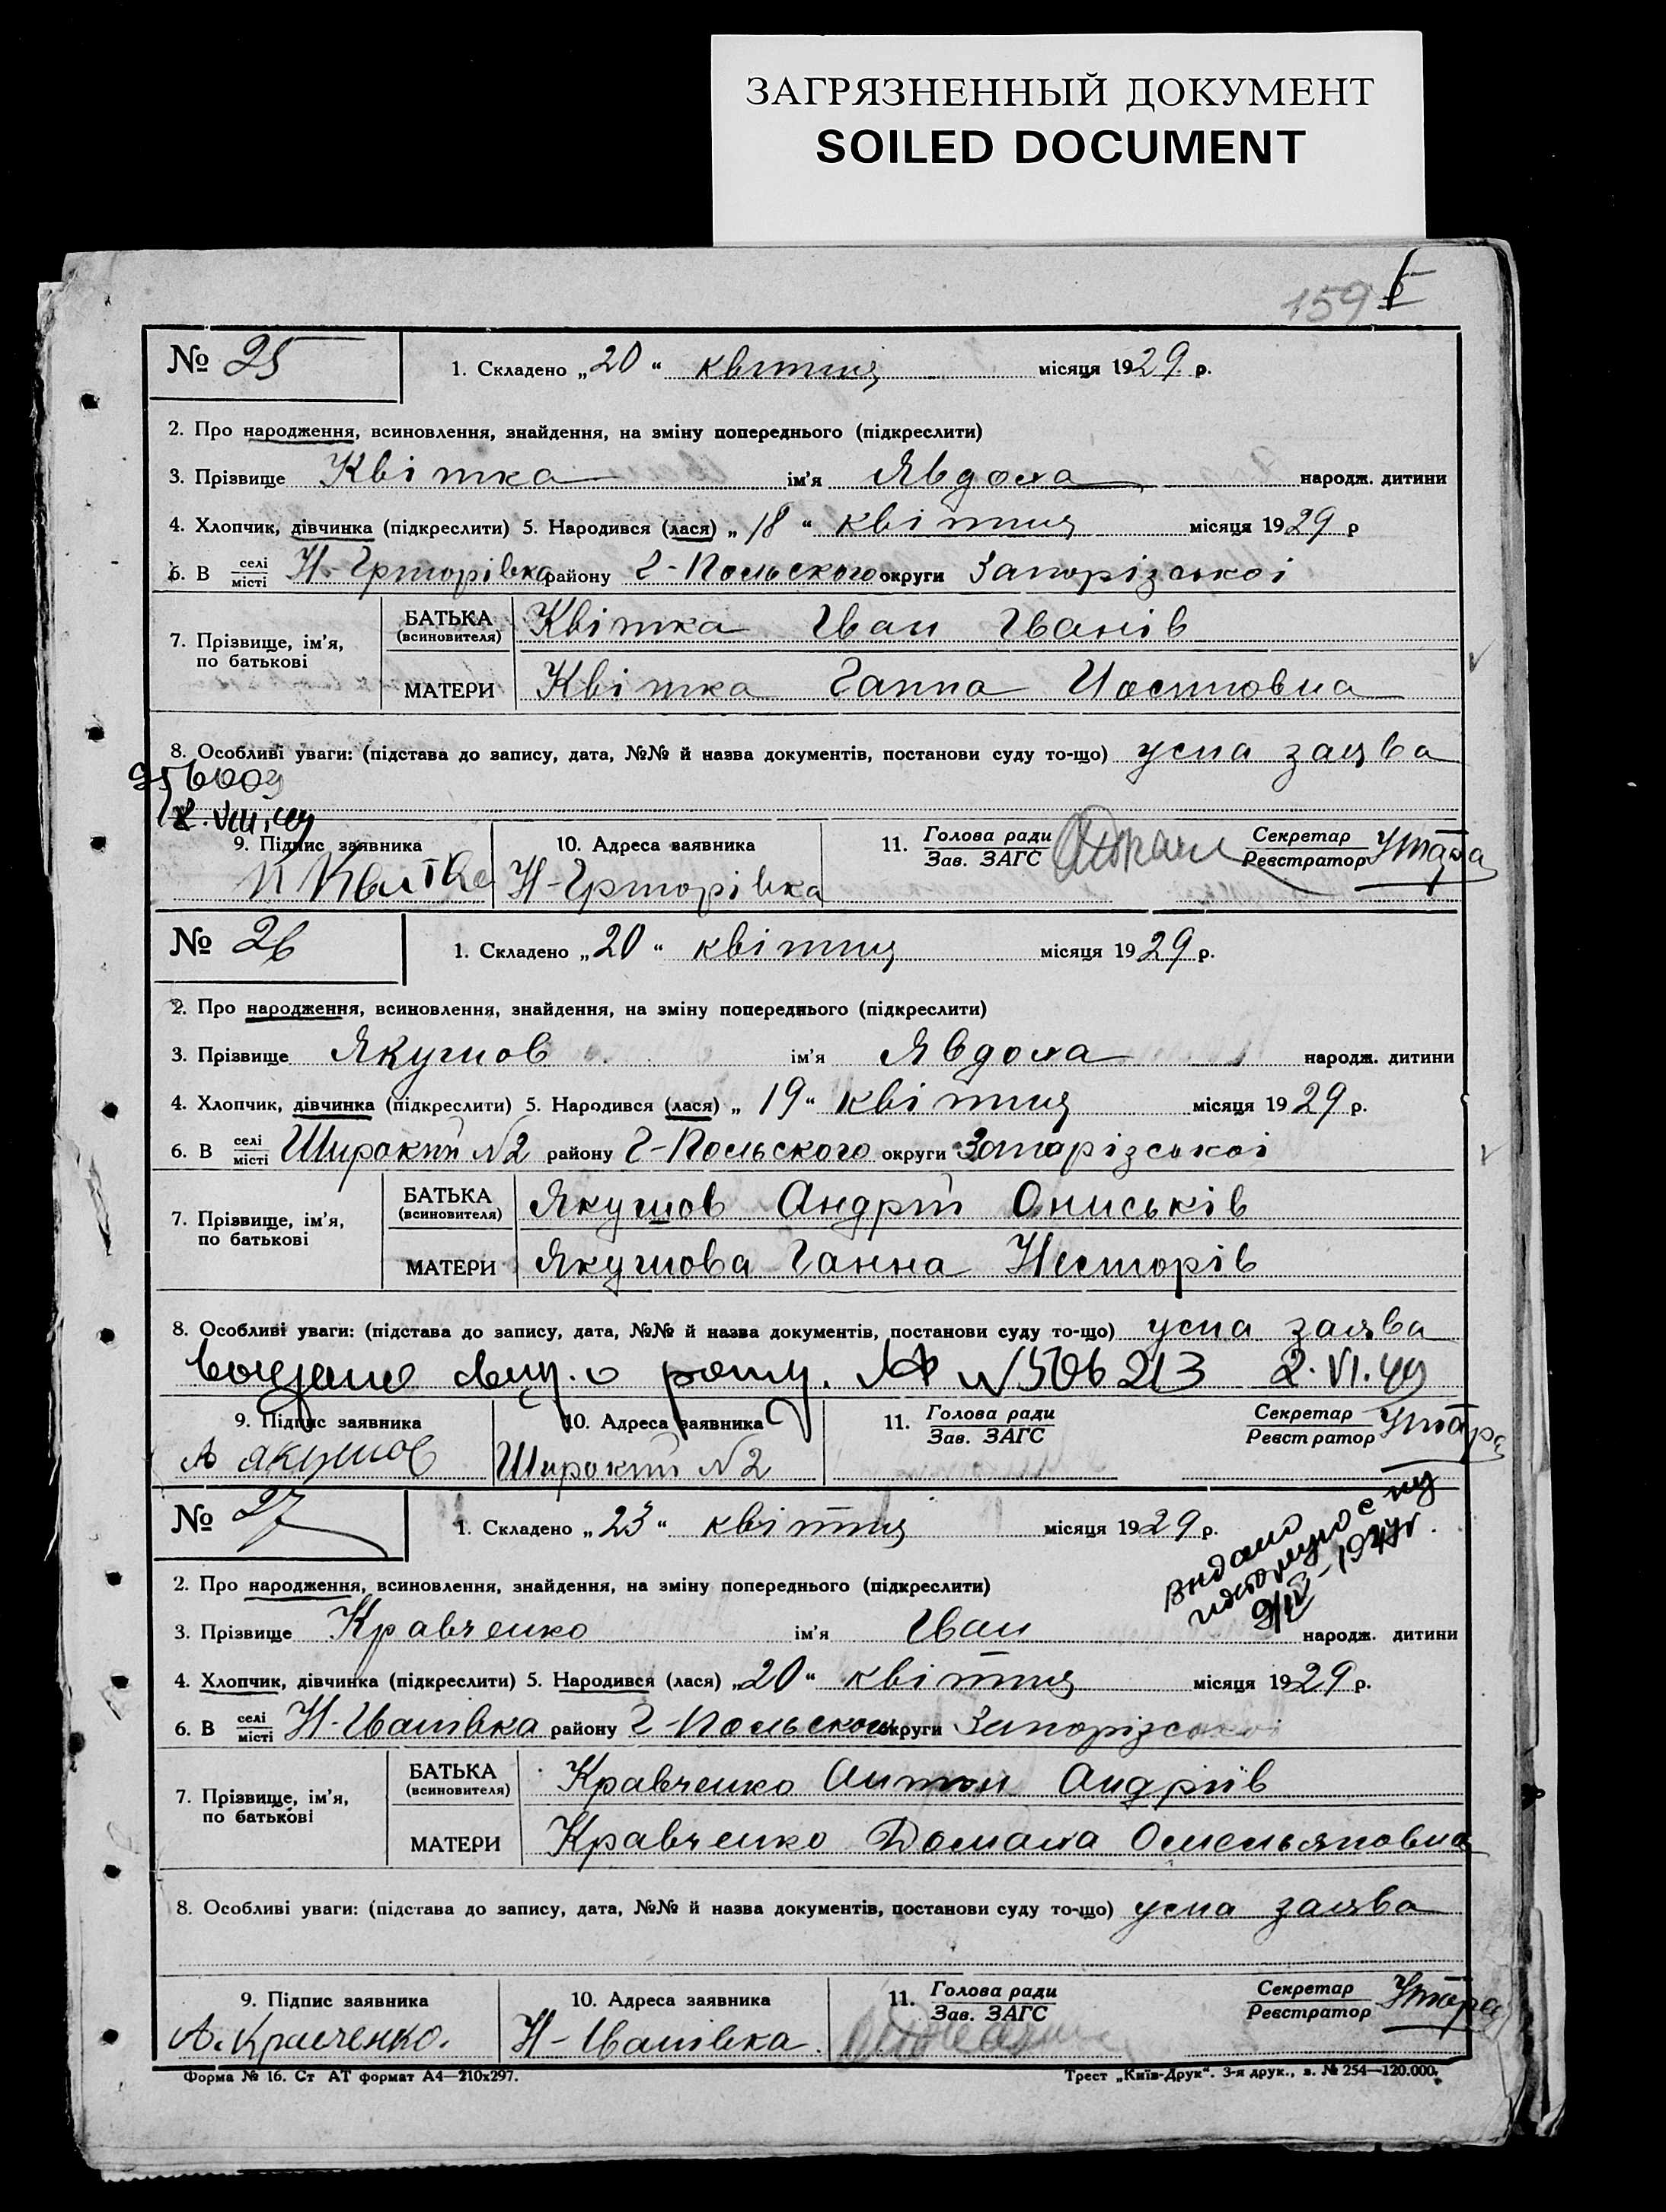 ЗАГРЯЗНЕННЫЙ ДОКУМЕНТ
SOILED DOCUMENT
159
№ 25
1. Складено „20“ квітня місяця 1929 р.
2. Про народження, всиновлення, знайдення, на зміну попереднього (підкреслити)
3. Прізвище Квітка ім'я Явдоха народж. дитини
4. Хлопчик, дівчинка (підкреслити) 5. Народився (лася) „18“ квітня місяця 1929 р
6. В селі/місті Н-Григорівка району Г-Польского округи Запорізської
7. Прізвище, ім'я, по батькові
БАТЬКА (всиновителя) Квітка Іван Іванів
МАТЕРИ Квітка Ганна Иостовна
8. Особливі уваги: (підстава до запису, дата, №№ й назва документів, постанови суду то-що) усна заява
9. Підпис заявника
10. Адреса заявника
11. Голова ради/Зав. ЗАГС
Секретар/Реєстратор
Квитка Н-Григорівка
№ 26
1. Складено „20“ квітня місяця 1929 р.
2. Про народження, всиновлення, знайдення, на зміну попереднього (підкреслити)
3. Прізвище Якушов ім'я Явдоха народж. дитини
4. Хлопчик, дівчинка (підкреслити) 5. Народився (лася) „19“ квітня місяця 1929 р.
6. В селі/місті Широкий №2 району Г-Польского округи Запорізської
7. Прізвище, ім'я, по батькові
БАТЬКА (всиновителя) Якушов Андрій Ониськів
МАТЕРИ Якушова Ганна Несторів
8. Особливі уваги: (підстава до запису, дата, №№ й назва документів, постанови суду то-що) усна заява
№506213 2.VI.49
9. Підпис заявника
10. Адреса заявника
11. Голова ради/Зав. ЗАГС
Секретар/Реєстратор
А Якушов Широкий №2
№ 27
1. Складено „23“ квітня місяця 1929 р.
2. Про народження, всиновлення, знайдення, на зміну попереднього (підкреслити)
3. Прізвище Кравченко ім'я Іван народж. дитини
4. Хлопчик, дівчинка (підкреслити) 5. Народився (лася) „20“ квітня місяця 1929 р.
6. В селі/місті Н-Іванівка району Г-Польского округи Запорізської
7. Прізвище, ім'я, по батькові
БАТЬКА (всиновителя) Кравченко Антон Андріїв
МАТЕРИ Кравченко Домаха Омельяновна
8. Особливі уваги: (підстава до запису, дата, №№ й назва документів, постанови суду то-що) усна заява
9. Підпис заявника
10. Адреса заявника
11. Голова ради/Зав. ЗАГС
Секретар/Реєстратор
А. Кравченко. Н-Іванівка.
Форма № 16. Ст АТ формат А4—210х297.
Трест „Київ-Друк“. 3-я друк., з. № 254—120.000.